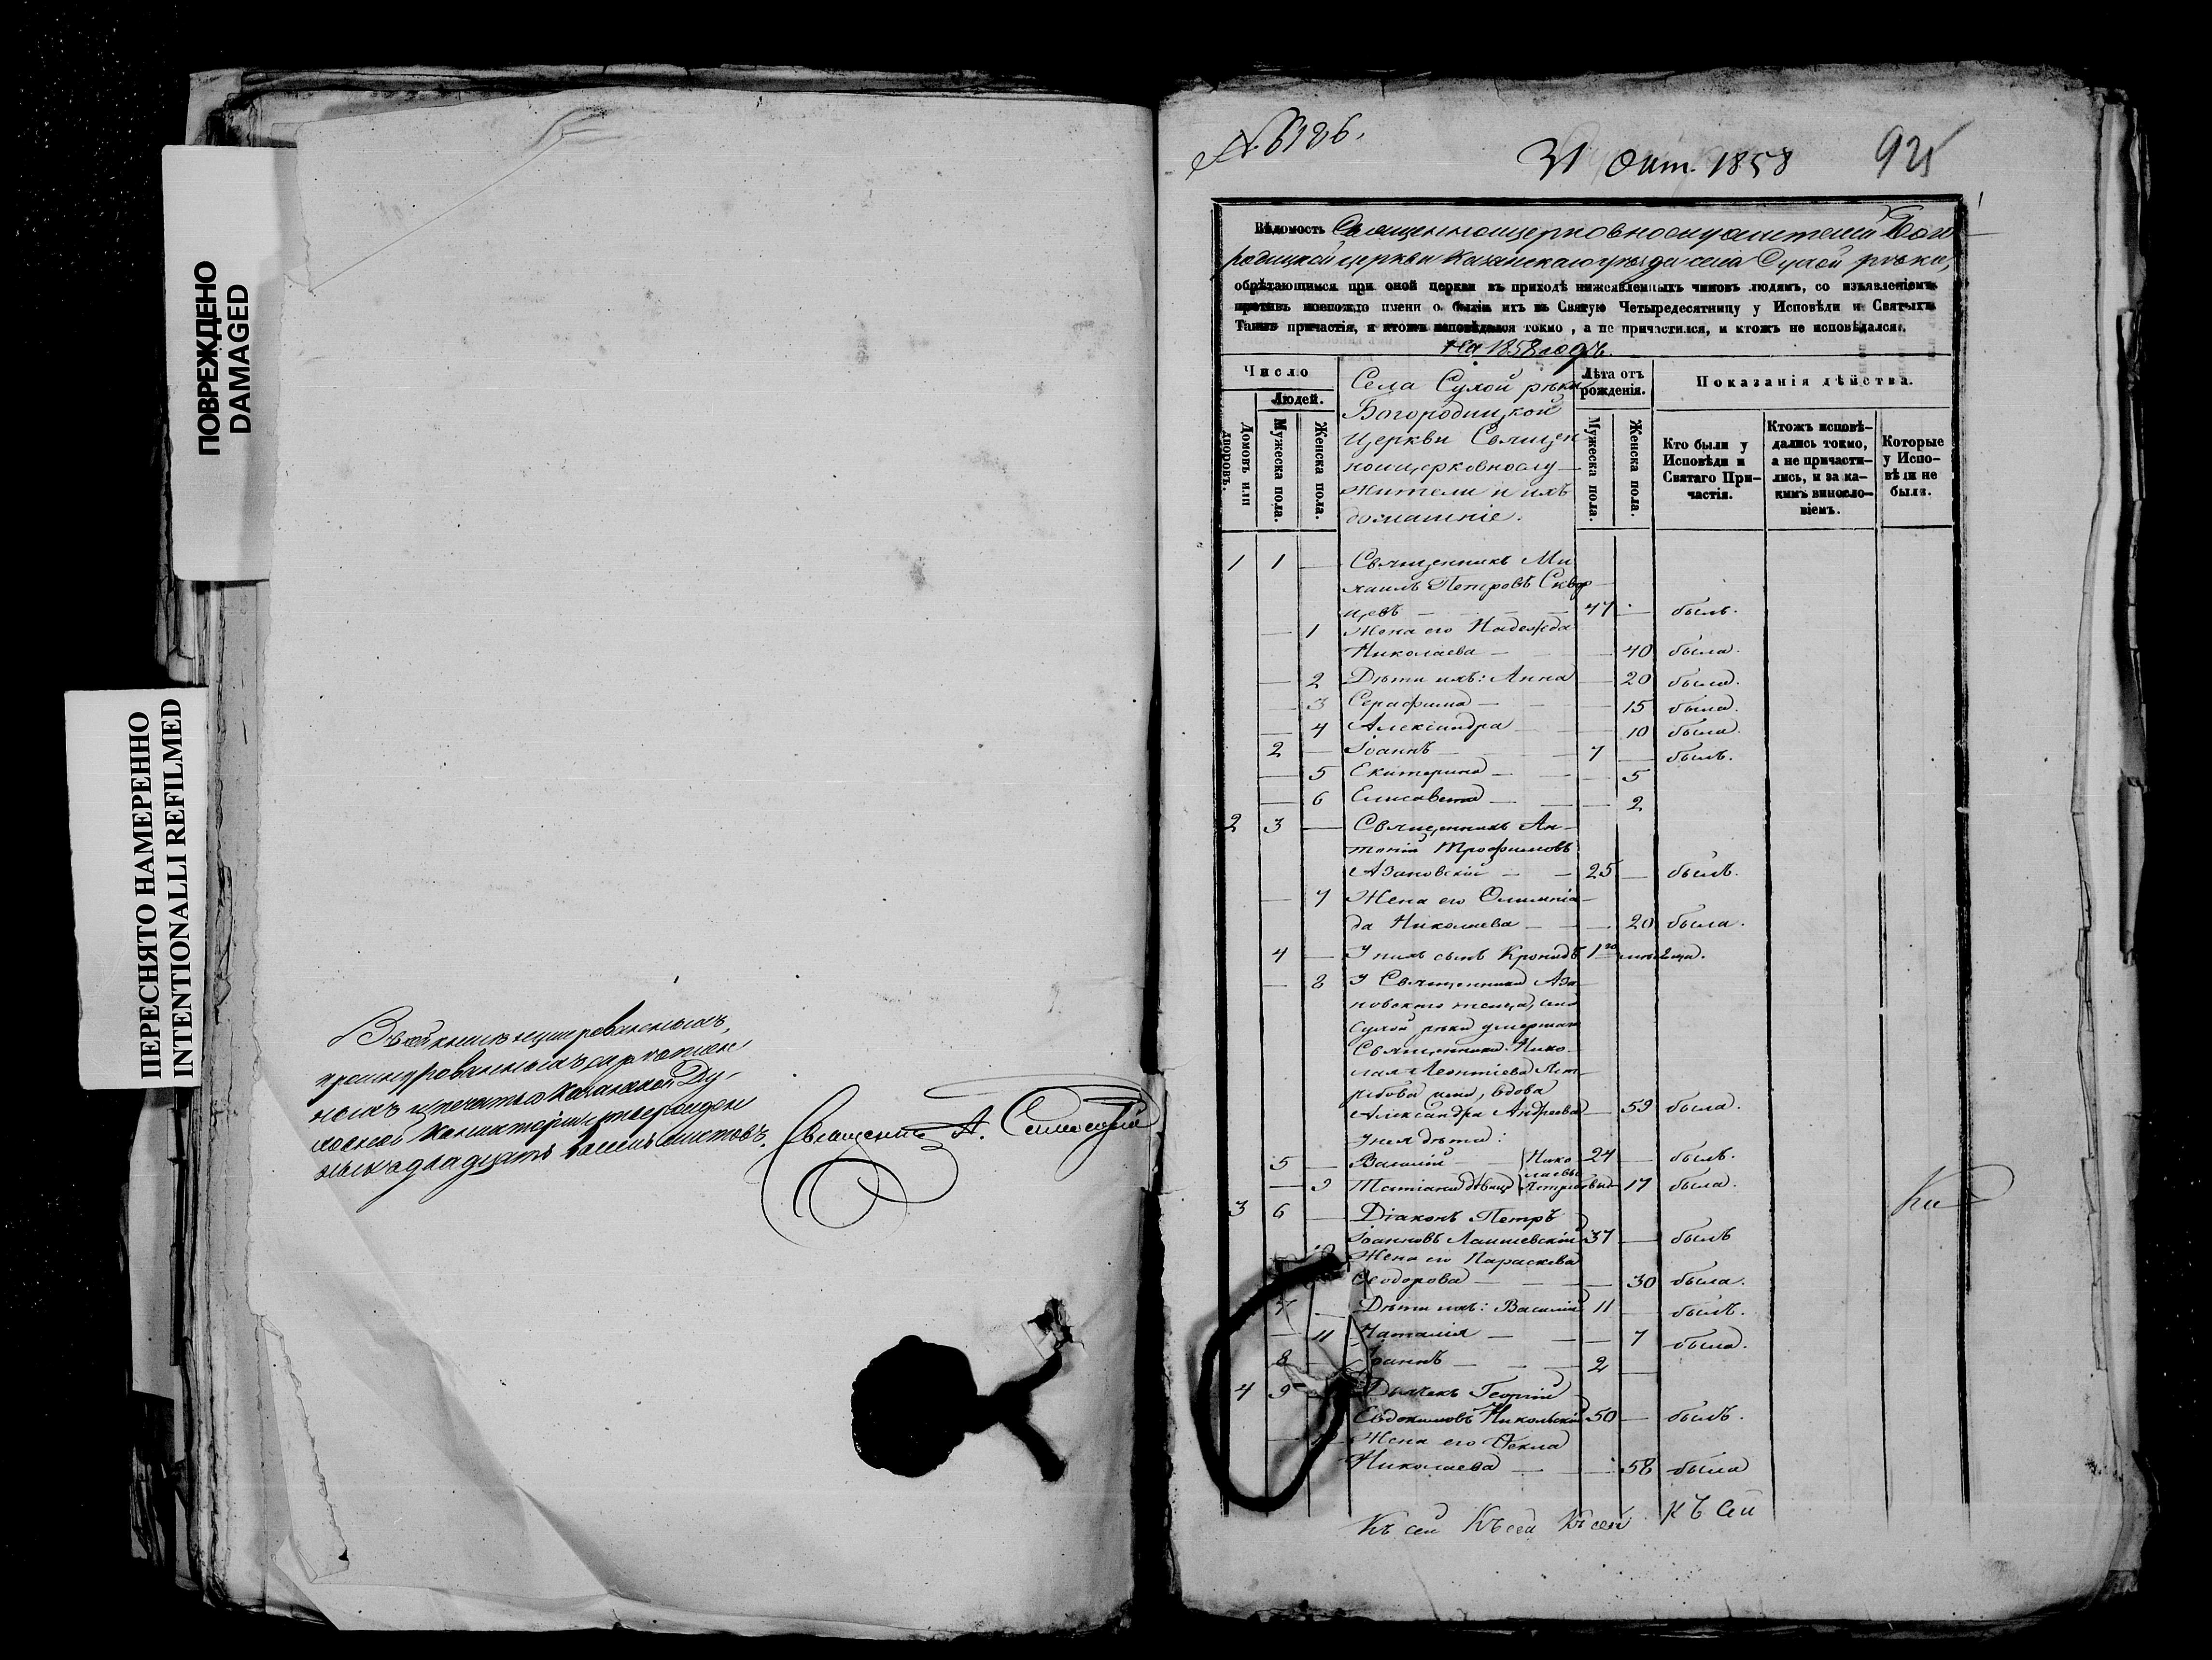 ПОВРЕЖДЕНО
DAMAGED
ПЕРЕСНЯТО НАМЕРЕННО
INTENTIONALLI REFILMED
нымъ и печатью Казанской Ду-
ховной Консисторіи утвержден
ныхъ двадцать восемь листовъ. Священникъ А.
31 Окт. 1858
925
Вѣдомость Священноцерковнослужителей Бого
родицкой церкви Казанскаго уѣзда села Сухой рѣки,
обрѣтающимся при оной церкви въ приходѣ нижеявленныхъ чиновъ людямъ, со изъявленіемъ
противъ коегождо имени о бытіи ихъ въ Святую Четыредесятницу у Исповѣди и Святыхъ
Таинъ причастія, и ктожъ исповѣдался токмо, а не причастился, и ктожъ не исповѣдался.
На 1858 годъ.
Число
Людей.
Домовъ или дворовъ.
Мужеска пола.
Женска пола.
Села Сухой рѣки
Богородицкой
Церкви Священ
ноцерковнослу-
жители и ихъ
домашніе.
Лѣта отъ
рожденія.
Мужеска пола.
Женска пола.
Показанія дѣйства.
Кто были у
Исповѣди и
Святаго При-
частія.
Ктожъ исповѣ-
дались токмо,
а не причасти-
лись, и за ка-
кимъ винсло-
віемъ.
Которые
у Испо-
вѣди не
были.
1 1 — Священникъ Ми
хаилъ Петровъ Сквор
цевъ — 47 — былъ.
— 1 Жена его Надежда
Николаева — — 40 была.
— 2 Дѣти ихъ: Анна — 20 была.
— 3 Серафима — — 15 была.
— 4 Александра — — 10 была.
2 — Іоаннъ — 7 — былъ.
— 5 Екатерина — — 5
— 6 Елисавета — — 2
2 3 — Священникъ Ан-
тоній Трофимовъ
Азановскій — 25 — былъ.
— 7 Жена его Олимпіа-
да Николаева — — 20 была.
4 — У нихъ сынъ Кронидъ 1го мѣсяца.
— 8 У Священника Аза
новскаго теща, села
Сухой рѣки умершаго
Священника Нико-
лая Леонтіева
жена, вдова
Александра Андреева — 59 была.
У нея дѣти:
5 — Василій — Нико 24 — былъ.
— 9 Татіана дѣвица лаевы — 17 была.
3 6 — Діаконъ Петръ
Іоанновъ Лаишевскій 37 — былъ
10 Жена его Параскева
Ѳеодорова — — 30 была.
7 — Дѣти ихъ: Василій 11 — былъ.
— 11 Наталія — — 7 была.
8 — Іоаннъ — 2 —
4 9 — Дьячекъ Георгій
Евдокимовъ Никольскій 50 — былъ.
Жена его Ѳекла
Николаева — — 58 была
Къ сей Къ сей Къ сей Къ сей